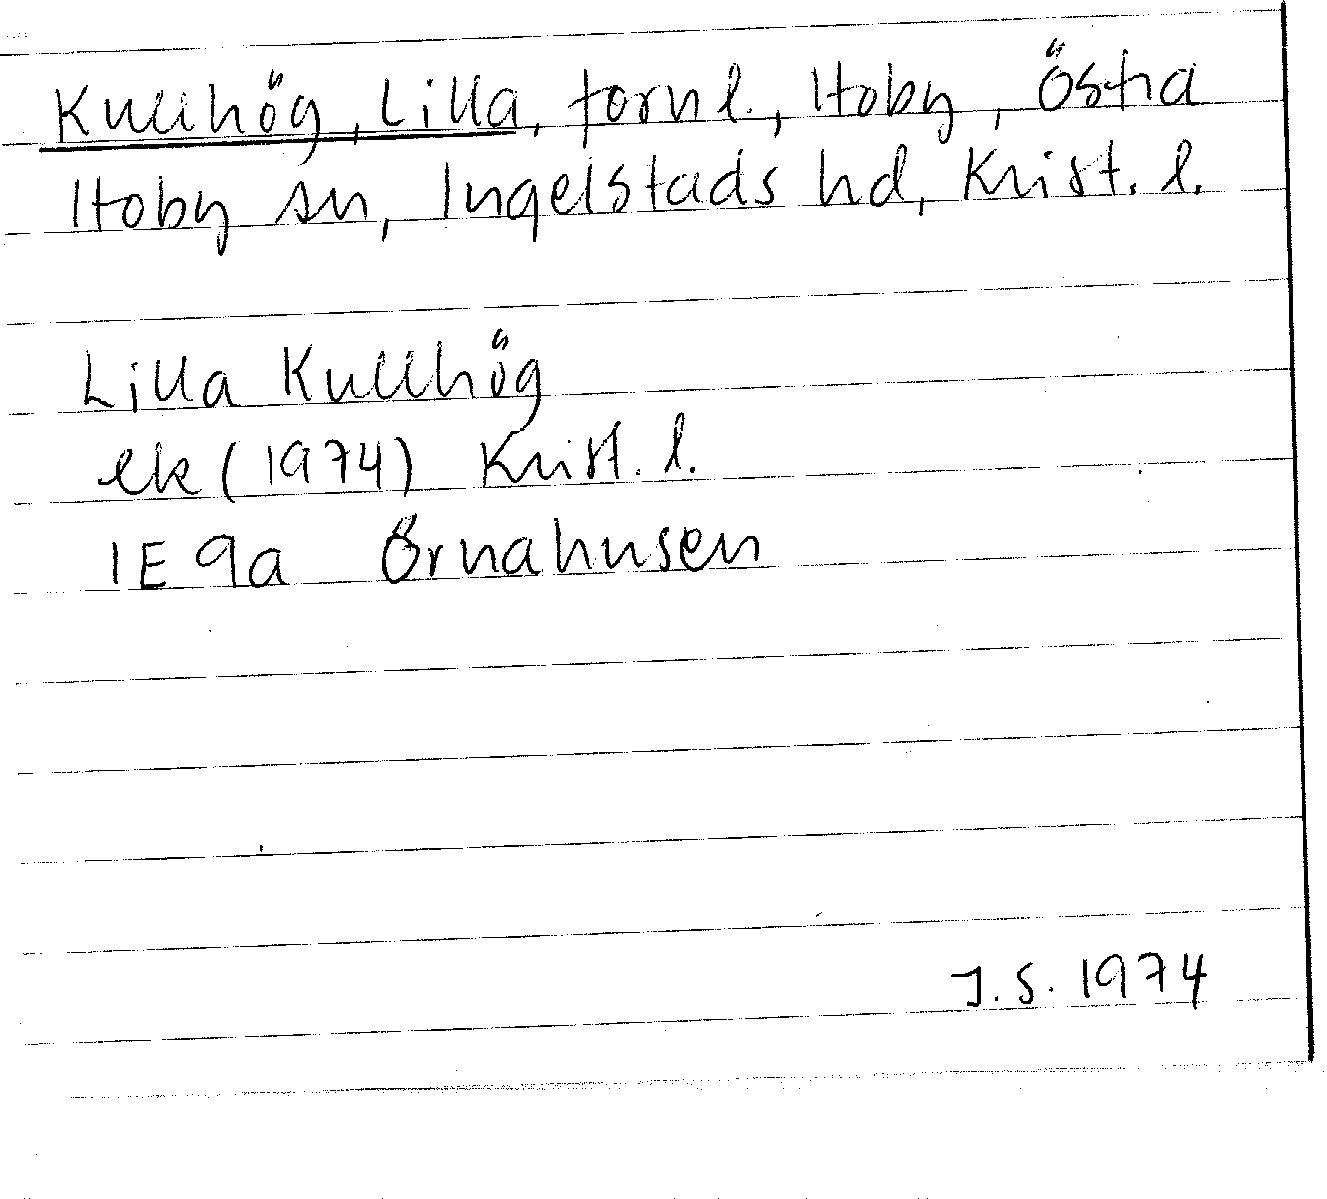 Kullhög, Lilla, fornl., Hoby, Östra
Hoby sn, Ingelstads hd, Krist. l.
Lilla Kullhög
ek (1974) Krist. l.
1E 9a Örnahusen
J.S. 1974